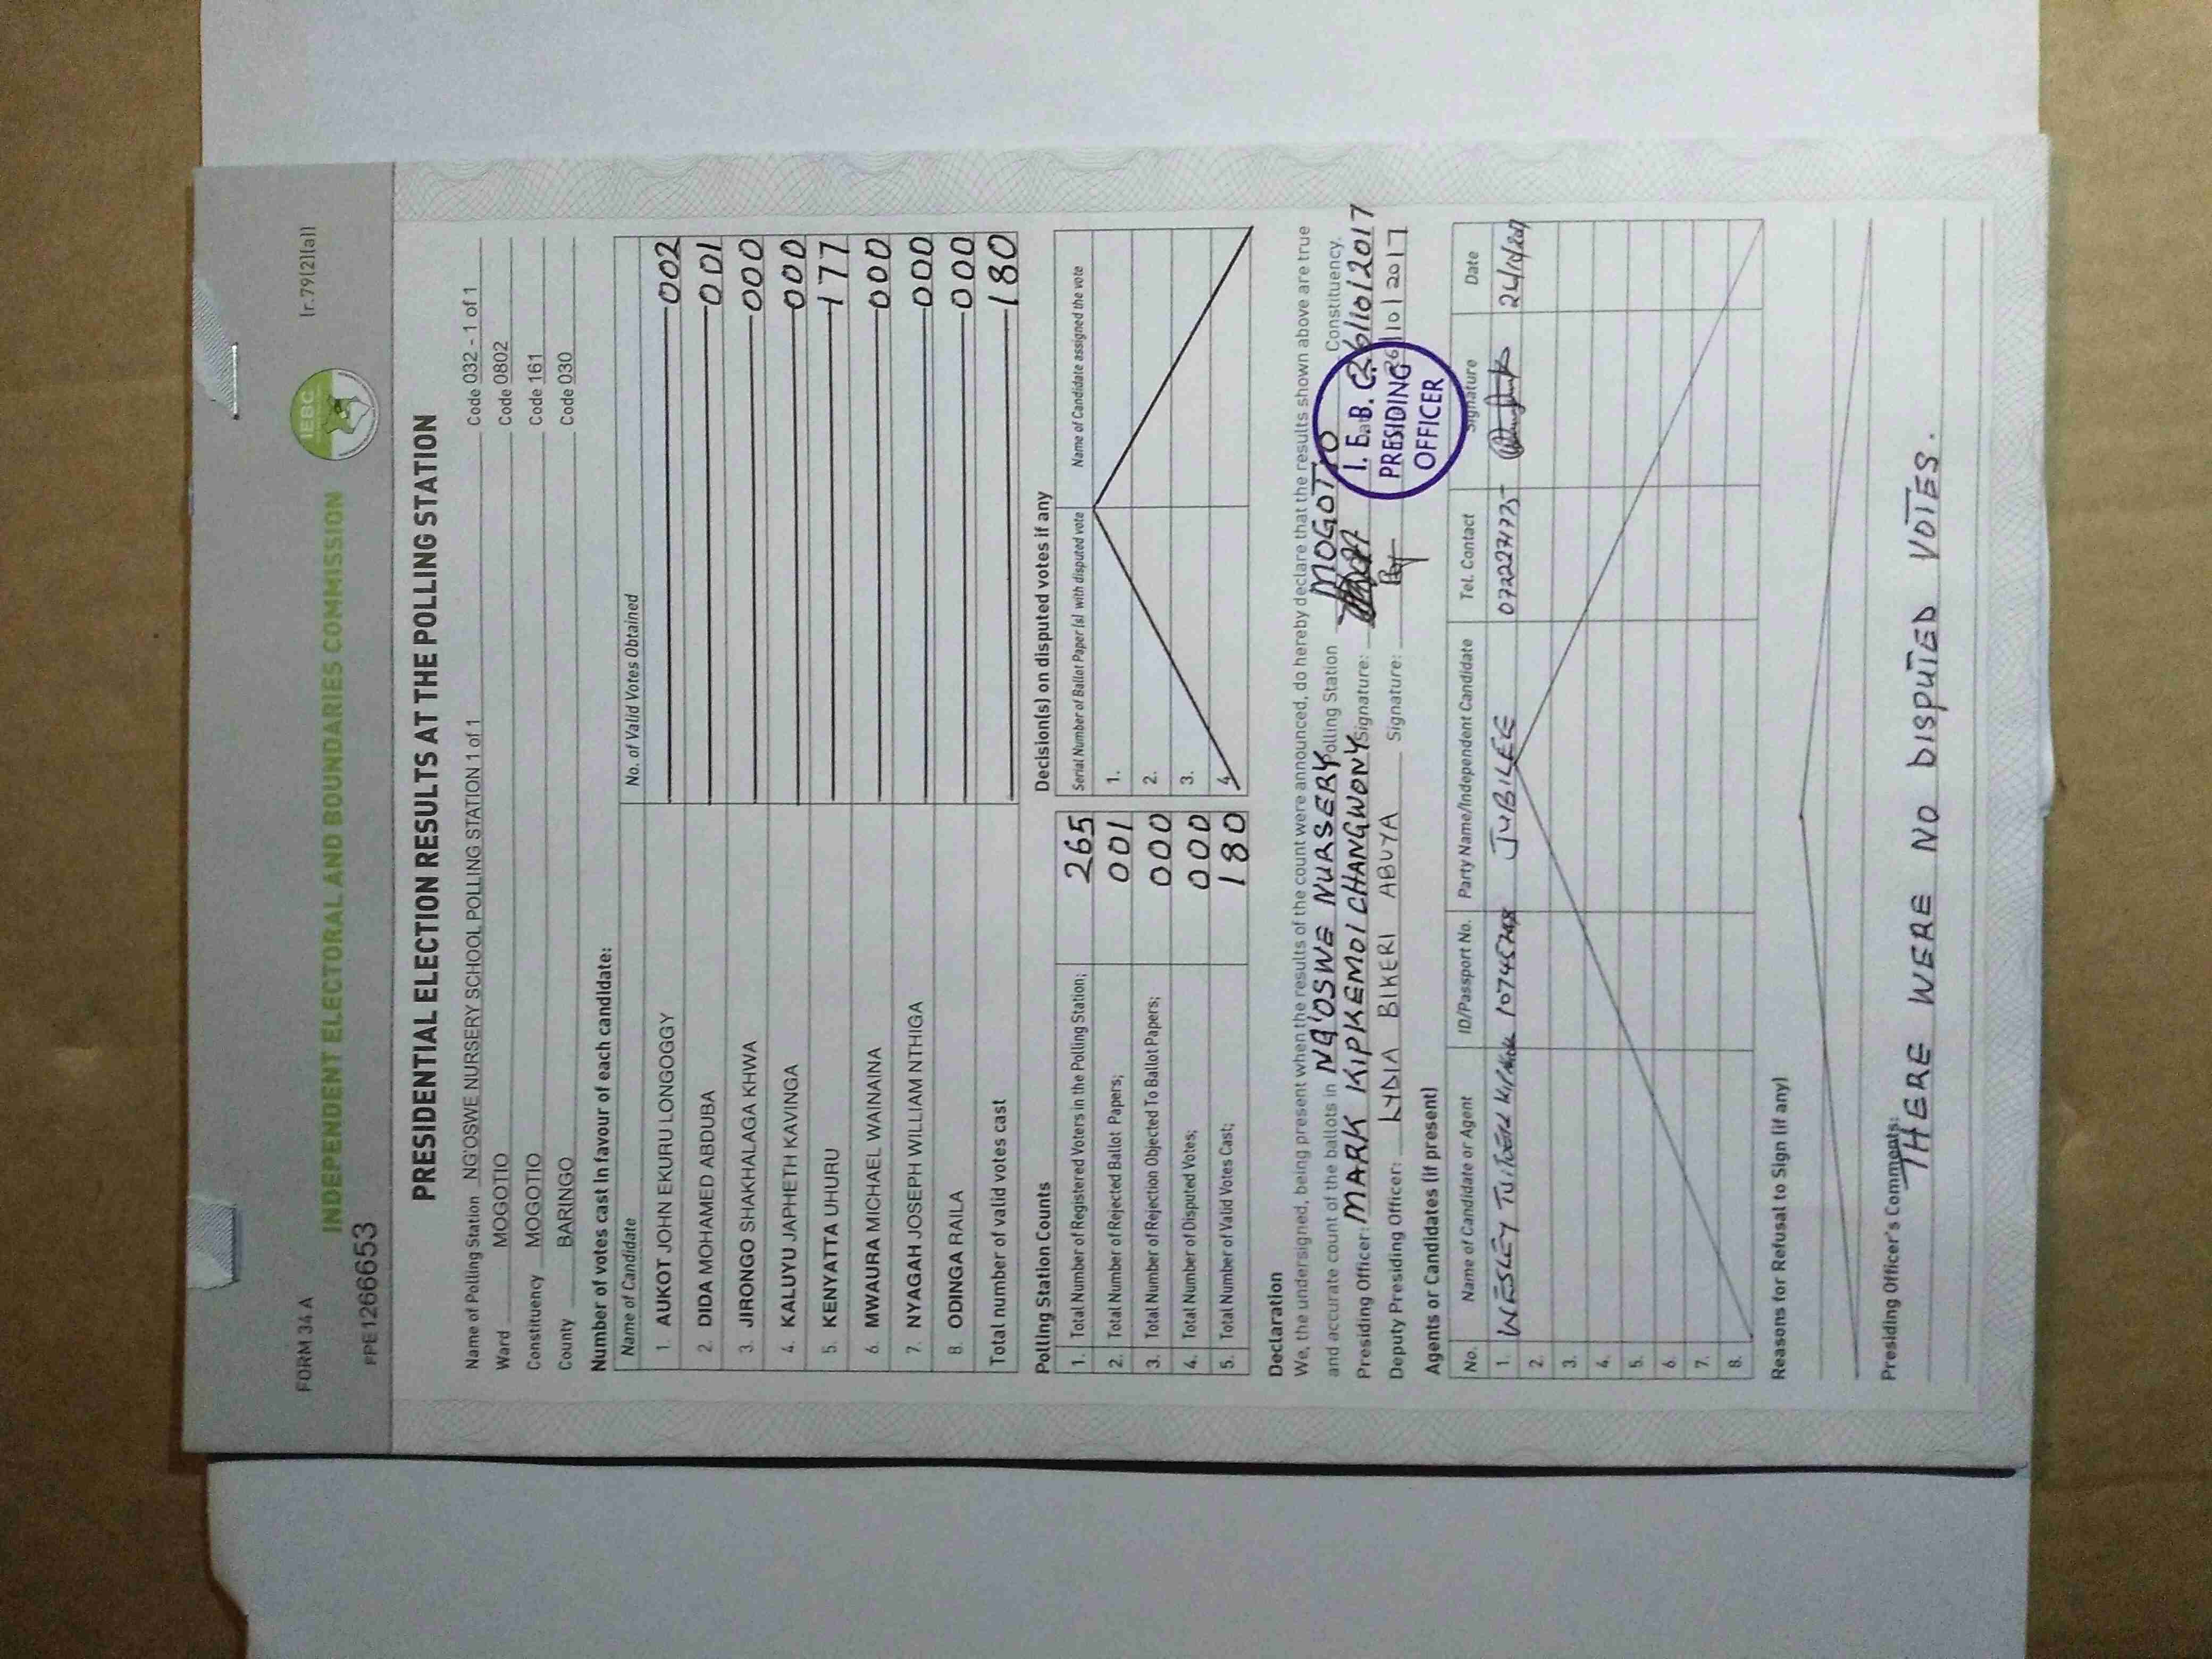 FORM 34 A (r.79(2)(a))
IEBC
INDEPENDENT ELECTORAL AND BOUNDARIES COMMISSION
PPE1266653
PRESIDENTIAL ELECTION RESULTS AT THE POLLING STATION
Name of Polling Station NG'OSWE NURSERY SCHOOL POLLING STATION 1 of 1 Code 032 - 1 of 1
Ward MOGOTIO Code 0802
Constituency MOGOTIO Code 161
County BARINGO Code 030
Number of votes cast in favour of each candidate:
Name of Candidate No. of Valid Votes Obtained
1. AUKOT JOHN EKURU LONGOGGY 002
2. DIDA MOHAMED ABDUBA 001
3. JIRONGO SHAKHALAGA KHWA 000
4. KALUYU JAPHETH KAVINGA 000
5. KENYATTA UHURU 177
6. MWAURA MICHAEL WAINAINA 000
7. NYAGAH JOSEPH WILLIAM NTHIGA 000
8. ODINGA RAILA 000
Total number of valid votes cast 180
Polling Station Counts
1. Total Number of Registered Voters in the Polling Station; 265
2. Total Number of Rejected Ballot Papers; 001
3. Total Number of Rejection Objected To Ballot Papers; 000
4. Total Number of Disputed Votes; 000
5. Total Number of Valid Votes Cast; 180
Decision(s) on disputed votes if any
Serial Number of Ballot Paper (s) with disputed vote Name of Candidate assigned the vote
1.
2.
3.
4.
Declaration
We, the undersigned, being present when the results of the count were announced, do hereby declare that the results shown above are true
and accurate count of the ballots in NG'OSWE NURSERY Polling Station MOGOTIO Constituency.
Presiding Officer: MARK KIPKEMOI CHANGWONY Signature: 26/10/2017
Deputy Presiding Officer: LYDIA BIKERI ABUYA Signature: 26/10/2017
I. E. B. C.
PRESIDING
OFFICER
Agents or Candidates (if present)
No. Name of Candidate or Agent ID/Passport No. Party Name/Independent Candidate Tel. Contact Signature Date
1. WESLEY JUBILEE
2.
3.
4.
5.
6.
7.
8.
Reasons for Refusal to Sign (if any)
Presiding Officer's Comments:
THERE WERE NO DISPUTED VOTES.